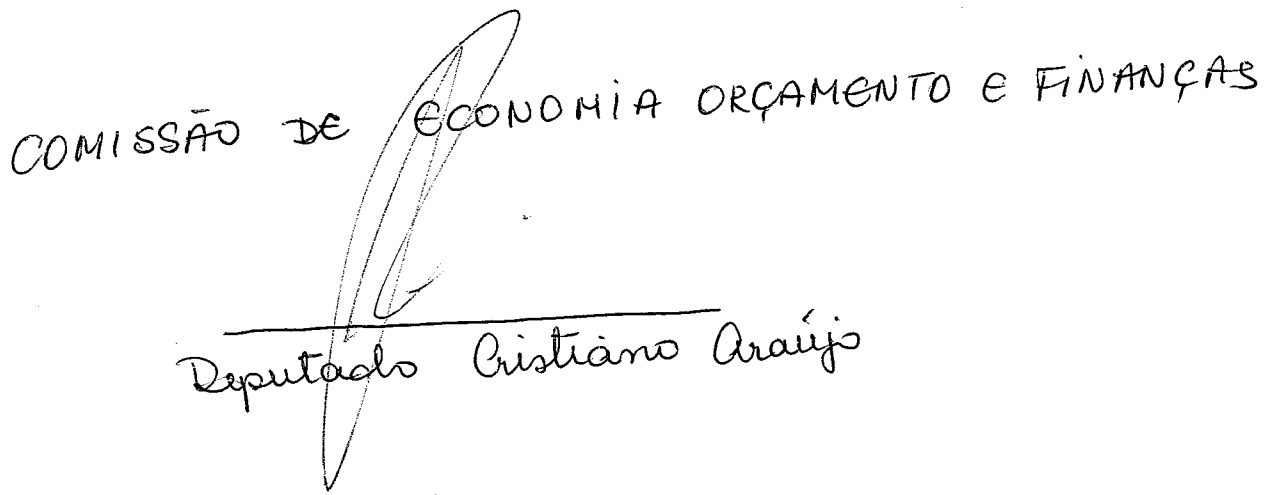 COMISSÃO DE ECONOMIA ORÇAMENTO E FINANÇAS
Deputado Cristiano Araújo